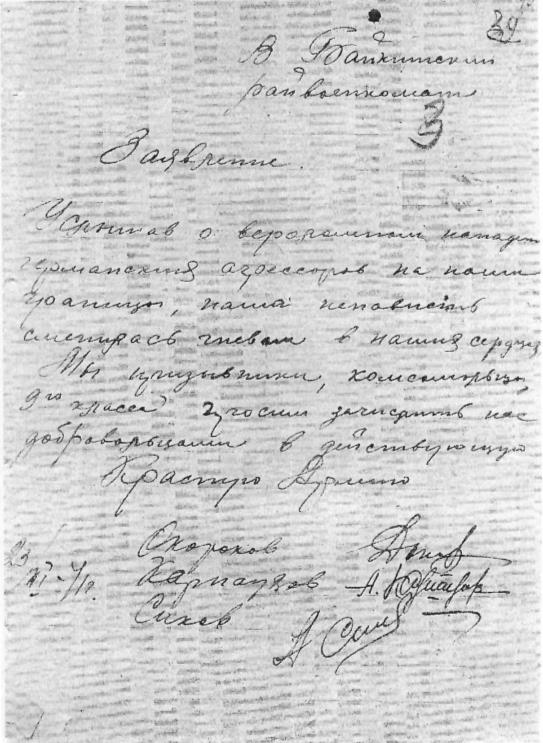 34
В Байкитский
райвоенкомат
3
Заявление.
Услышав о вероломном нападен
германских агрессоров на наши
границы, наша ненависть
сменилась гневом в наших сердцах
Мы призывники, комсомольцы,
9го класса просим зачислить нас
добровольцами в действующую
Красную Армию
23
VI-41г.
Скороков
Карпаузов
Сихов